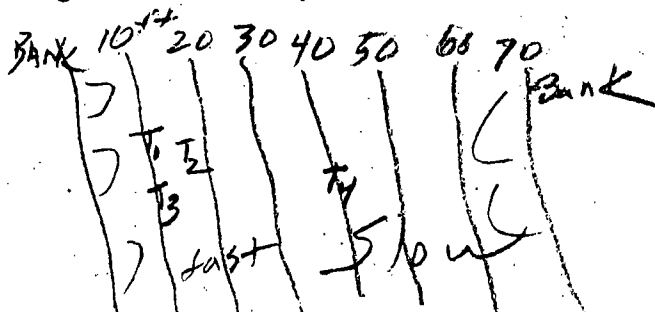 BANK 10ft 20 30 40 50 60 70
Bank
T1 T2
T4
T3
fast Slow